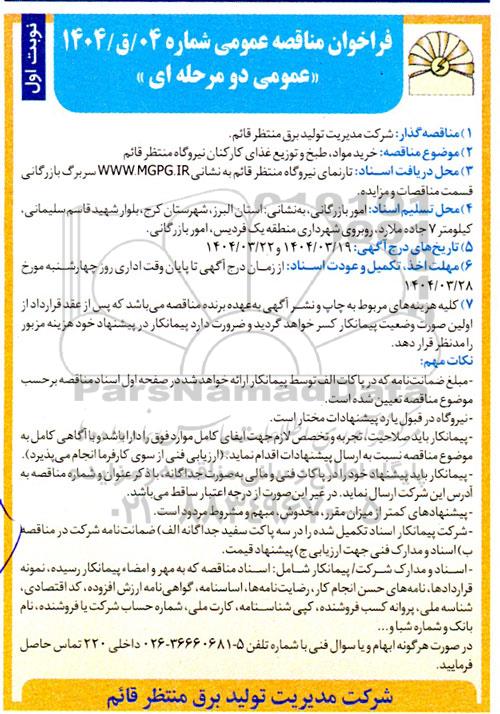 نوبت اول
فراخوان مناقصه عمومی شماره ۰۴/ق/۱۴۰۴
«عمومی دو مرحله ای»
۱) مناقصه‌گذار: شرکت مدیریت تولید برق منتظر قائم.
۲) موضوع مناقصه: خرید مواد، طبخ و توزیع غذای کارکنان نیروگاه منتظر قائم
۳) محل دریافت اسناد: تارنمای نیروگاه منتظر قائم به نشانی WWW.MGPG.IR سربرگ بازرگانی
قسمت مناقصات و مزایده.
۴) محل تسلیم اسناد: امور بازرگانی، به‌نشانی: استان البرز، شهرستان کرج، بلوار شهید قاسم سلیمانی،
کیلومتر ۷ جاده ملارد، روبروی شهرداری منطقه یک فردیس، امور بازرگانی.
۵) تاریخ‌های درج آگهی: ۱۴۰۴/۰۳/۱۹ و ۱۴۰۴/۰۳/۲۲
۶) مهلت اخذ، تکمیل و عودت اسناد: از زمان درج آگهی تا پایان وقت اداری روز چهارشنبه مورخ
۱۴۰۴/۰۳/۲۸
۷) کلیه هزینه‌های مربوط به چاپ و نشر آگهی به‌عهده برنده مناقصه می‌باشد که پس از عقد قرارداد از
اولین صورت وضعیت پیمانکار کسر خواهد گردید و ضرورت دارد پیمانکار در پیشنهاد خود هزینه مزبور
را مدنظر قرار دهد.
نکات مهم:
- مبلغ ضمانت‌نامه که در پاکات الف توسط پیمانکار ارائه خواهد شد در صفحه اول اسناد مناقصه برحسب
موضوع مناقصه تعیین شده است.
- نیروگاه در قبول یا رد پیشنهادات مختار است.
- پیمانکار باید صلاحیت، تجربه و تخصص لازم جهت ایفای کامل موارد فوق را دارا باشد و با آگاهی کامل به
موضوع مناقصه نسبت به ارسال پیشنهادات اقدام نماید. (ارزیابی فنی از سوی کارفرما انجام می‌پذیرد).
- پیمانکار باید پیشنهاد خود را در پاکات فنی و مالی به‌صورت جداگانه، با ذکر عنوان و شماره مناقصه به
آدرس این شرکت ارسال نماید. در غیر این صورت از درجه اعتبار ساقط می‌باشد.
- پیشنهادهای کمتر از میزان مقرر، مخدوش، مبهم و مشروط مردود است.
- شرکت پیمانکار اسناد تکمیل شده را در سه پاکت سفید جداگانه الف) ضمانت‌نامه شرکت در مناقصه
ب) اسناد و مدارک فنی جهت ارزیابی ج) پیشنهاد قیمت.
- اسناد و مدارک شرکت/ پیمانکار شامل: اسناد مناقصه که به مهر و امضاء پیمانکار رسیده، نمونه
قراردادها، نامه‌های حسن انجام کار، رضایت‌نامه‌ها، اساسنامه، گواهی‌نامه ارزش افزوده، کد اقتصادی،
شناسه ملی، پروانه کسب فروشنده، کپی شناسنامه، کارت ملی، شماره حساب شرکت یا فروشنده، نام
بانک و شماره شبا و...
در صورت هرگونه ابهام و یا سوال فنی با شماره تلفن ۵-۳۶۶۶۰۶۸۱-۰۲۶ داخلی ۲۲۰ تماس حاصل
فرمایید.
شرکت مدیریت تولید برق منتظر قائم
ParsNamadData